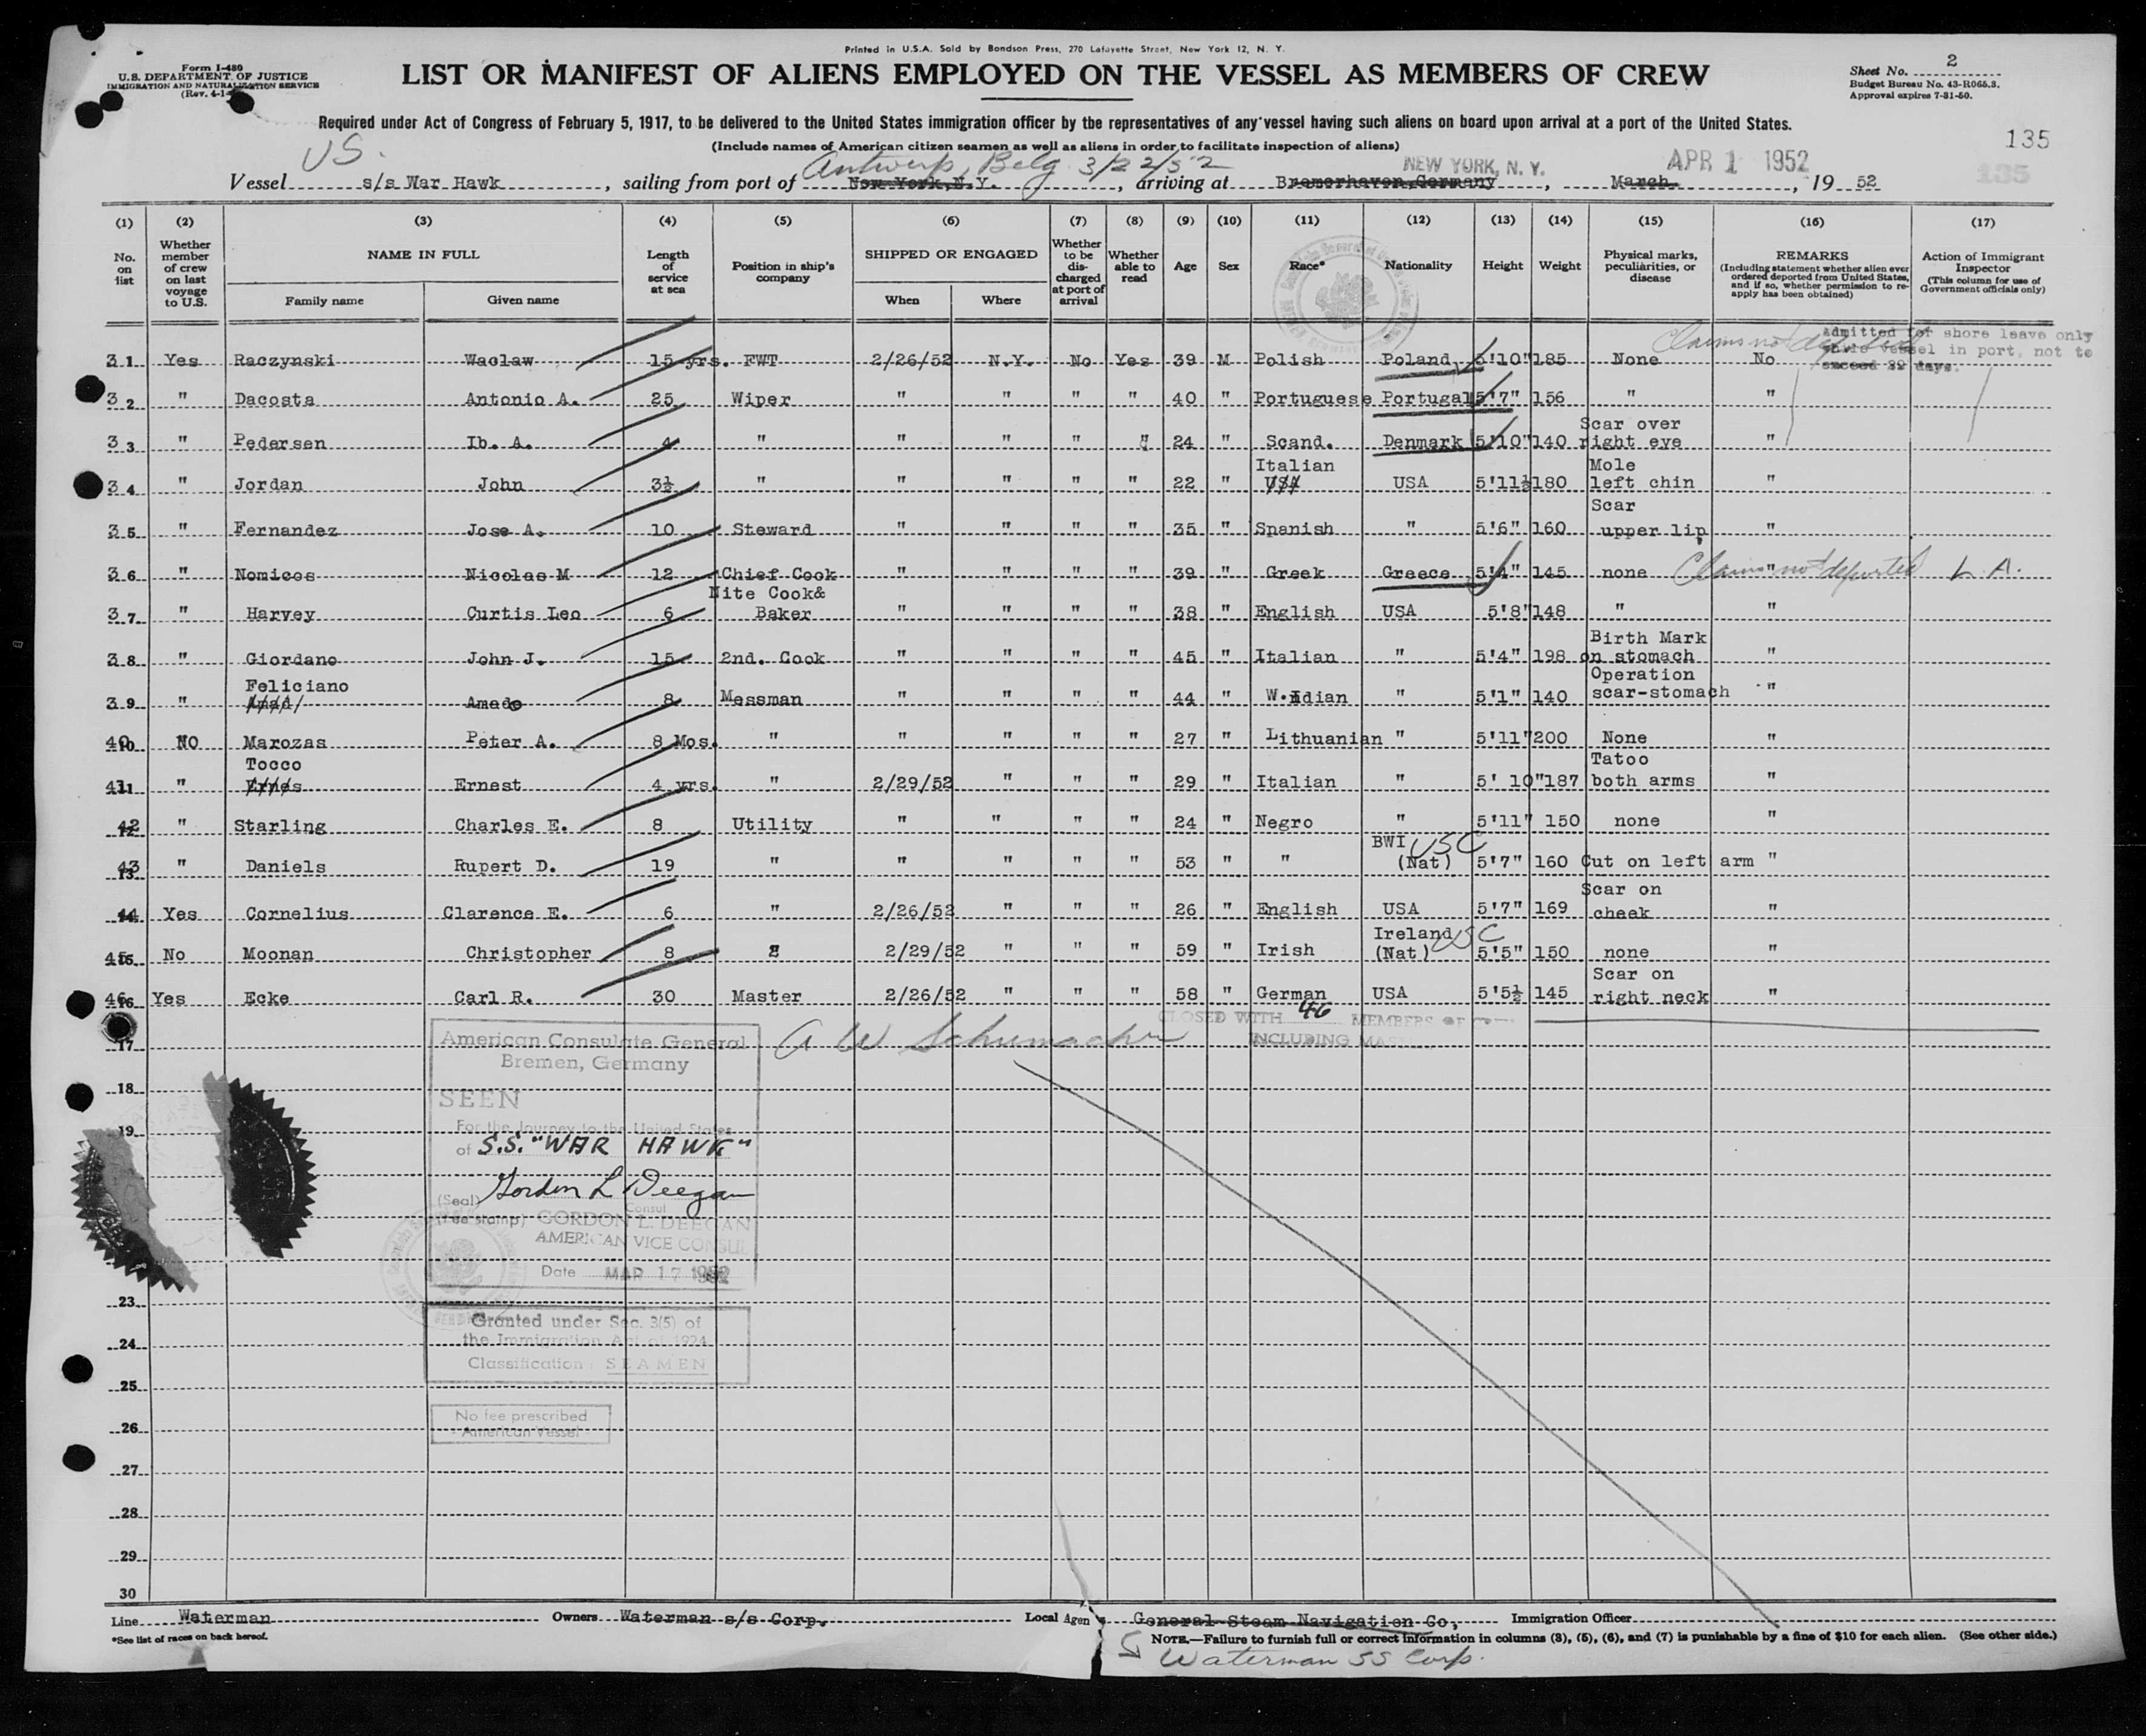 Printed in U.S.A. Sold by Bondson Press, 270 Lafayette Street, New York 12, N. Y.
Form I-480
U.S. DEPARTMENT OF JUSTICE
IMMIGRATION AND NATURALIZATION SERVICE
(Rev. 4-1-
LIST OR MANIFEST OF ALIENS EMPLOYED ON THE VESSEL AS MEMBERS OF CREW
Sheet No. 2
Budget Bureau No. 43-R065.3.
Approval expires 7-31-50.
Required under Act of Congress of February 5, 1917, to be delivered to the United States immigration officer by the representatives of any vessel having such aliens on board upon arrival at a port of the United States.
(Include names of American citizen seamen as well as aliens in order to facilitate inspection of aliens)
135
US.
Antwerp, Belg 3/22/52
NEW YORK, N. Y. APR 1 1952
135
Vessel s/s War Hawk, sailing from port of New York, N.Y., arriving at Bremerhaven, Germany, March, 19 52
(1) (2) (3) (4) (5) (6) (7) (8) (9) (10) (11) (12) (13) (14) (15) (16) (17)
No. on list
Whether member of crew on last voyage to U.S.
NAME IN FULL
Family name
Given name
Length of service at sea
Position in ship's company
SHIPPED OR ENGAGED
When
Where
Whether to be discharged at port of arrival
Whether able to read
Age
Sex
Race*
Nationality
Height
Weight
Physical marks, peculiarities, or disease
REMARKS
(Including statement whether alien ever ordered deported from United States, and if so, whether permission to reapply has been obtained)
Action of Immigrant Inspector
(This column for use of Government officials only)
Claims not deported
Admitted for shore leave only while vessel in port, not to exceed 29 days.
31 Yes Raczynski Waclaw 15 yrs. FWT 2/26/52 N.Y. No Yes 39 M Polish Poland 5'10" 185 None No
32 " Dacosta Antonio A. 25 Wiper " " " " 40 " Portuguese Portugal 5'7" 156 " "
33 " Pedersen Ib. A. 4 " " " " " 24 " Scand. Denmark 5'10" 140 Scar over right eye "
34 " Jordan John 3½ " " " " " 22 " Italian USA USA 5'11½ 180 Mole left chin "
35 " Fernandez Jose A. 10 Steward " " " " 35 " Spanish " 5'6" 160 Scar upper lip "
36 " Nomicos Nicolas M 12 Chief Cook " " " " 39 " Greek Greece 5'4" 145 none " Claims not deported L. A.
37 " Harvey Curtis Leo 6 Nite Cook& Baker " " " " 38 " English USA 5'8" 148 " "
38 " Giordano John J. 15 2nd. Cook " " " " 45 " Italian " 5'4" 198 Birth Mark on stomach "
39 " Feliciano Amado 8 Messman " " " " 44 " W.Idian " 5'1" 140 Operation scar-stomach "
40 NO Marozas Peter A. 8 Mos. " " " " " 27 " Lithuanian " 5'11" 200 None "
41 " Tocco Ernest 4 yrs. " 2/29/52 " " " 29 " Italian " 5' 10" 187 Tatoo both arms "
42 " Starling Charles E. 8 Utility " " " " 24 " Negro " 5'11" 150 none "
43 " Daniels Rupert D. 19 " " " " " 53 " " BWI (Nat) USC 5'7" 160 Cut on left arm "
44 Yes Cornelius Clarence E. 6 " 2/26/52 " " " 26 " English USA 5'7" 169 Scar on cheek "
45 No Moonan Christopher 8 " 2/29/52 " " " 59 " Irish Ireland (Nat) USC 5'5" 150 none "
46 Yes Ecke Carl R. 30 Master 2/26/52 " " " 58 " German USA 5'5½ 145 Scar on right neck "
CLOSED WITH 46 MEMBERS OF
INCLUDING MASTER
A W Schumacher
American Consulate General
Bremen, Germany
SEEN
For the Journey to the United States
of S.S. "WAR HAWK"
Gordon L Deegan
(Seal) Consul
(Fee stamp) GORDON L. DEEGAN
AMERICAN VICE CONSUL
Date MAR 17 1952
Granted under Sec. 3(5) of
the Immigration Act of 1924
Classification: SEAMEN
No fee prescribed
- American Vessel -
17
18
19
23
24
25
26
27
28
29
30
Line Waterman Owners Waterman s/s Corp. Local Agents General Steam Navigation Co, Immigration Officer
*See list of races on back hereof.
NOTE.—Failure to furnish full or correct information in columns (3), (5), (6), and (7) is punishable by a fine of $10 for each alien. (See other side.)
Waterman SS Corp.